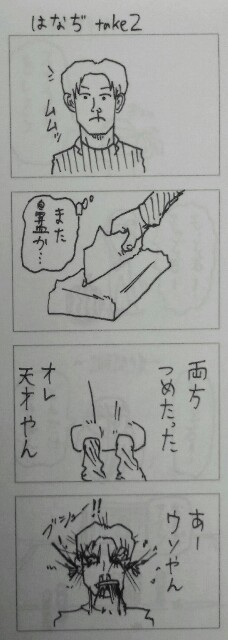 はなぢ take2
ムムッ
また
鼻血か…
両方
つめたった
オレ
天才やん
あー
ウソやん
ブシュー!!